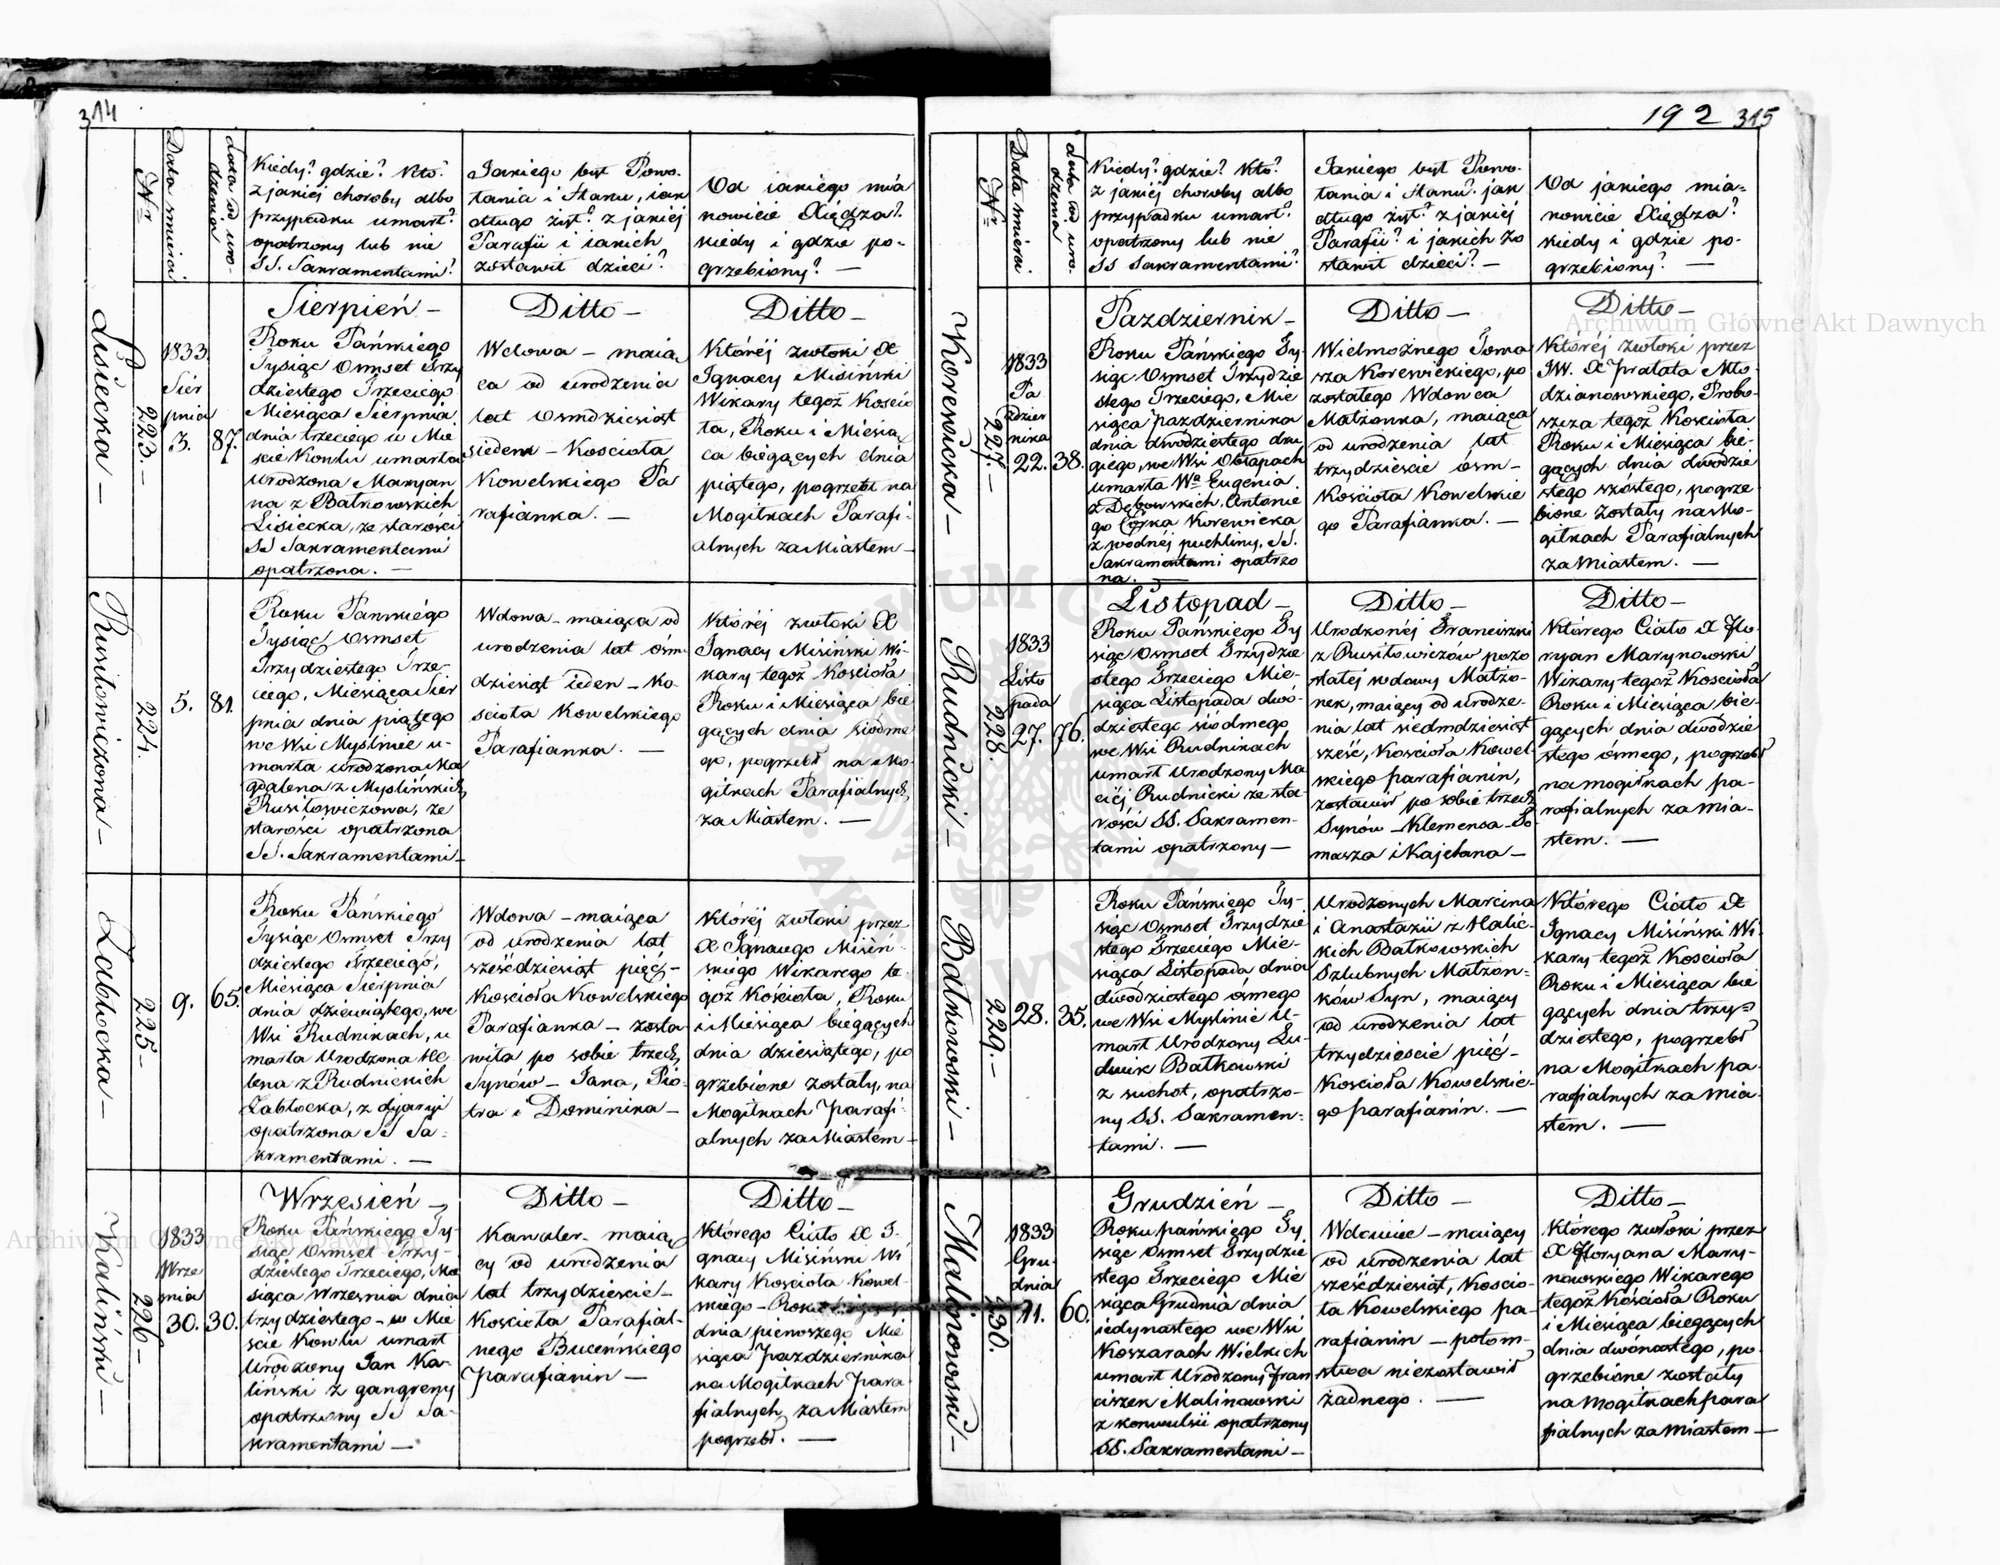 314
Nr
Data śmierci
Lata od uro-
dzenia
Kiedy? gdzie? Kto?
z jakiej choroby albo
przypadku umarł?
opatrzony lub nie
SS. Sakramentami?
Jakiego był Powo-
łania i stanu, iak
długo żył? z jakiej
Parafii i iakich
zostawił dzieci?
Od iakiego mia
nowicie Xiędza?
kiedy i gdzie po-
grzebiony? —
Lisiecka —
223. —
1833
Sier
pnia
3.
87.
Sierpień —
Roku Pańskiego
Tysiąc Osmset Trzy
dziestego Trzeciego
Miesiąca Sierpnia
dnia trzeciego w Mie
ście Kowlu umarła
urodzona Maryan
na z Bałkowskich
Lisiecka, ze starości
SS Sakramentami
opatrzona. —
Ditto —
Wdowa — maią
ca od urodzenia
lat Osmdziesiąt
siedem — Kościoła
Kowelskiego Pa
rafianka. —
Ditto —
Którèj zwłoki X
Ignacy Misiński
Wikary tegoż Kościo
ła, Roku i Miesią
ca biegących dnia
piątego, pogrzebł na
Mogiłkach Parafi-
alnych za Miastem —
Rusiłowiczowa —
224.
5.
81.
Roku Pańskiégo
Tysiąc Osmset
Trzydziestego Trze-
ciego, Miesiąca Sier
pnia dnia piątego
we Wsi Myślinie u-
marła urodzona Ma
gdalena z Myślińskich
Rusiłowiczowa, ze
starości opatrzona
SS. Sakramentami —
Wdowa — maiąca od
urodzenia lat ośm
dziesiąt ieden — Ko-
ścioła Kowelskiego
Parafianka. —
Którèj zwłoki X
Ignacy Misiński Wi-
kary tegoż Kościoła
Roku i Miesiąca bie
gących dnia siódme
go, pogrzebł na Mo-
giłkach Parafialnych
za Miastem. —
Zabłocka —
225 —
9.
65.
Roku Pańskiego
Tysiąc Osmset Trzy
dziestego Trzeciego,
Miesiąca Sierpnia
dnia dziewiątego, we
Wsi Rudnikach, u
marła Urodzona He
lena z Rudnickich
Zabłocka, z dyaryi
opatrzona SS Sa-
kramentami. —
Wdowa — maiąca
od urodzenia lat
sześćdziesiąt pięć —
Kościoła Kowelskiego
Parafianka — zosta
wiła po sobie trzech
Synów — Jana, Pio-
tra i Dominika —
Którèj zwłoki przez
X Ignacego Misiń-
skiego Wikarego te-
goż Kościoła, Roku
i Miesiąca biegących
dnia dziesiątego, po
grzebione zostały, na
Mogiłkach parafi-
alnych za Miastem —
Kaliński —
226 —
1833
Wrze
śnia
30.
30.
Wrzesień —
Roku Pańskiego Ty-
siąc Osmset Trzy-
dziestego Trzeciego, Mie
siąca Września dnia
trzydziestego — w Mie
ście Kowlu umarł
Urodzony Jan Ka-
liński z gangreny
opatrzony SS Sa-
kramentami —
Ditto —
Kawaler — maią
cy od urodzenia
lat trzydzieście —
Kościoła Parafial-
nego Buceńskiego
parafianin —
Ditto —
Którego Ciało X I-
gnacy Misiński Wi
kary Kościoła Kowel-
skiego — Roku
dnia pierwszego Mie
siąca Października
na Mogiłkach para
fialnych za Miastem
pogrzebł. —
192 315
Nr
Data śmierci
Lata od uro-
dzenia
Kiedy? gdzie? Kto?
z jakiej choroby albo
przypadku umarł?
opatrzony lub nie
SS Sakramentami?
Jakiego był Powo-
łania i stanu? jak
długo żył? z jakiej
Parafii? i jakich zo
stawił dzieci? —
Od jakiego mia-
nowicie Xiędza?
kiedy i gdzie po-
grzebiony? —
Korewicka —
227. —
1833
Pa
ździer
nika
22.
38.
Pazdziernik —
Roku Pańskiego Ty-
siąc Osmset Trzydzie
stego Trzeciego, Mie
siąca października
dnia dwudziestego dru
giego, we Wsi Obłapach
umarła Wa Eugenia
z Dębowskich, Antonie
go Córka Korewicka
z wodnéj puchliny, SS.
Sakramentami opatrzo
na. —
Ditto —
Wielmożnego Toma
sza Korewickiego, po
zostałego Wdowca
Małżonka, maiąca
od urodzenia lat
trzydzieście ósm —
Kościoła Kowelskie
go Parafianka. —
Ditto —
Którèj zwłoki przez
JW. X Prałata Mło-
dzianowskiego, Probo-
szcza tegoż Kościoła
Roku i Miesiąca bie-
gących dnia dwudzie
stego szóstego, pogrze
bione zostały na Mo-
giłkach Parafialnych
za Miastem. —
Rudnicki —
228.
1833
Listo
pada
27.
76.
Listopad —
Roku Pańskiego Ty
siąc Osmset Trzydzie
stego Trzeciego Mie-
siąca Listopada dwó-
dziestego siódmego
we Wsi Rudnikach
umarł Urodzony Ma
ciéj Rudnicki ze sta-
rości SS. Sakramen-
tami opatrzony —
Ditto —
Urodzonéj Franciszki
z Rusiłowiczów pozo
stałej wdowy Małżo-
nek, maiący od urodze-
nia lat siedmdziesiąt
sześć, Kościoła Kowel-
skiego parafianin,
zostawił po sobie trzech
Synów — Klemensa — To
masza i Kajetana —
Ditto —
Którego Ciało X Flo-
ryan Marynowski
Wikary tegoż Kościoła
Roku i Miesiąca bie-
gących dnia dwudzie
stego ósmego, pogrzebł
na mogiłkach pa-
rafialnych za Mia-
stem. —
Bałkowski —
229. —
28.
35.
Roku Pańskiego Ty-
siąc Osmset Trzydzie
stego Trzeciego Mie-
siąca Listopada dnia
dwódziestego ósmego
we Wsi Myślinie U-
marł Urodzony Lu-
dwik Bałkowski
z suchot, opatrzo-
ny SS. Sakramen-
tami. —
Urodzonych Marcina
i Anastazii z Halic-
kich Bałkowskich
Szlubnych Małżon-
ków Syn, maiący
od urodzenia lat
trzydzieście pięć —
Kościoła Kowelskie-
go parafianin. —
Którego Ciało X
Ignacy Misiński Wi-
kary tegoż Kościoła
Roku i Miesiąca bie
gących dnia trzy-
dziestego, pogrzebł
na Mogiłkach pa-
rafialnych za Mia-
stem. —
Malinowski —
230.
1833
Gru-
dnia
11.
60.
Grudzień —
Roku pańskiego Ty
siąc Osmset Trzydzie
stego Trzeciego Mie
siąca Grudnia dnia
iedynastego we Wsi
Koszarach Wielkich
umarł Urodzony Fran
ciszek Malinowski
z konwulsii opatrzony
SS. Sakramentami —
Ditto —
Wdowiec — maiący
od urodzenia lat
sześćdziesiąt, Kościo-
ła Kowelskiego pa-
rafianin — potom-
stwa niezostawił
żadnego. —
Ditto —
Którego zwłoki przez
X Floryana Mary-
nowskiego Wikarego
tegoż Kościoła Roku
i Miesiąca biegących
dnia dwónastego, po-
grzebione zostały
na mogiłkach para
fialnych za Miastem —
Archiwum Główne Akt Dawnych
Archiwum Główne Akt Dawnych